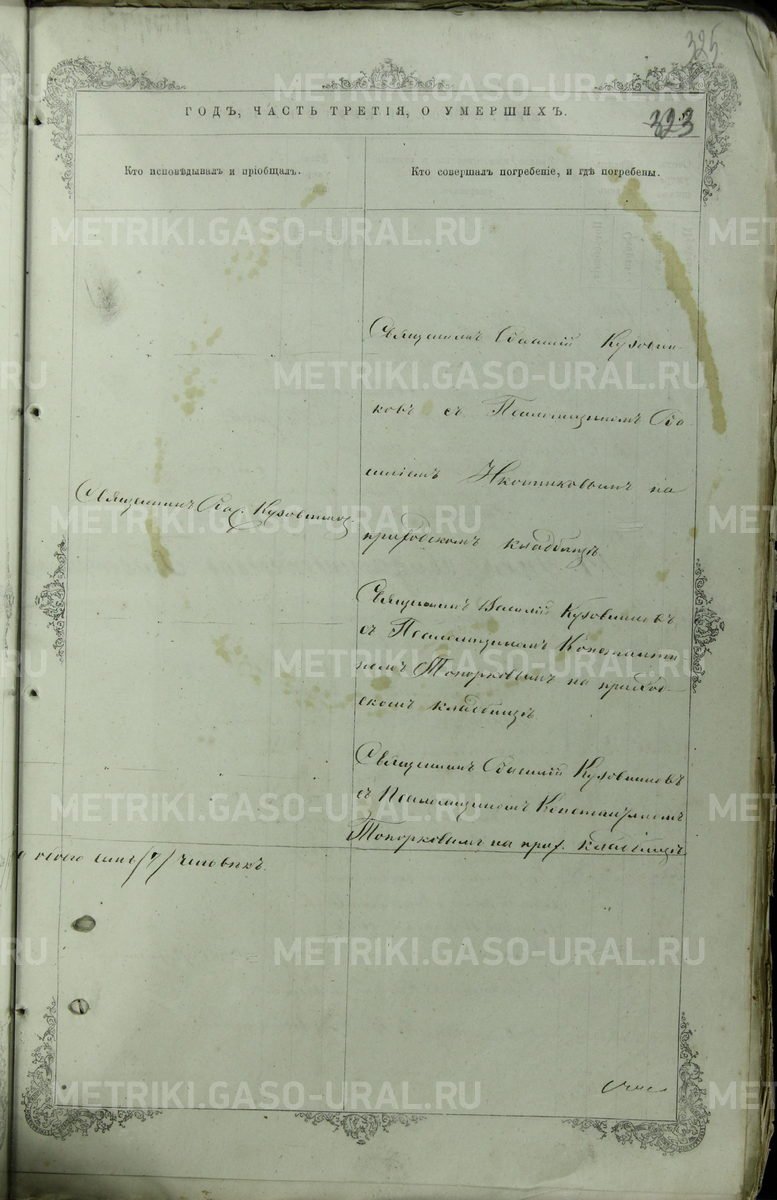 325
ГОДЪ, ЧАСТЬ ТРЕТІЯ, О УМЕРШИХЪ.
323
Кто исповѣдывалъ и пріобщалъ.
Кто совершалъ погребеніе, и гдѣ погребены.
Священникъ Василій Кузовни-
ковъ съ Псаломщикомъ Ва
силіемъ Иконниковымъ на
Священникъ Вас. Кузовниковъ
приходскомъ кладбищѣ
Священникъ Василій Кузовниковъ
съ Псаломщикомъ Константи
номъ Топорковымъ на приход-
скомъ кладбищѣ
Священникъ Василій Кузовниковъ
съ Псаломщикомъ Константиномъ
Топорковымъ на прих. кладбищѣ
всего семь (7) человѣкъ.
METRIKI.GASO-URAL.RU